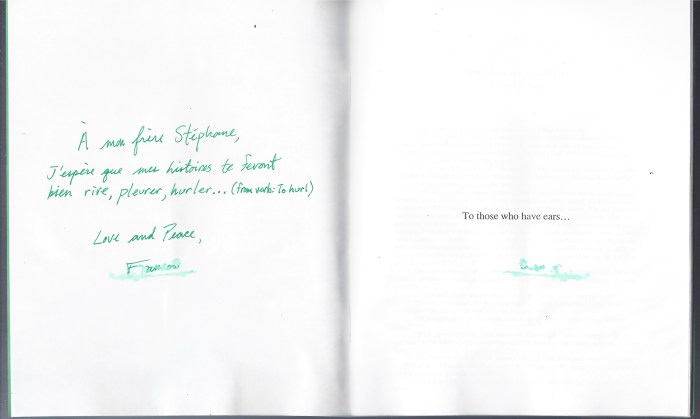 À mon frère Stéphane,
J'espère que mes histoires te feront
bien rire, pleurer, hurler... (from verb: To hurl)
Love and Peace,
To those who have ears...